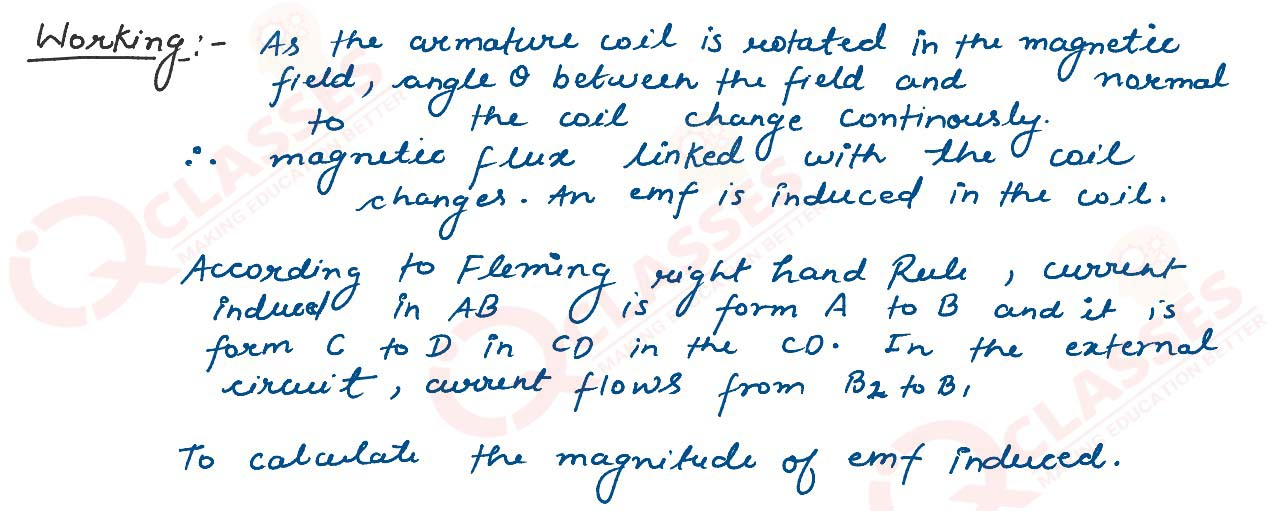 Working:- As the armature coil is rotated in the magnetic
field, angle θ between the field and normal
to the coil change continously.
∴ magnetic flux linked with the coil
changes. An emf is induced in the coil.
According to Fleming right hand Rule, current
induced in AB is form A to B and it is
form C to D in CD in the CD. In the external
circuit, current flows from B2 to B1
To calculate the magnitude of emf induced.
QCLASSES
MAKING EDUCATION BETTER
QCLASSES
MAKING EDUCATION BETTER
QCLASSES
MAKING EDUCATION BETTER